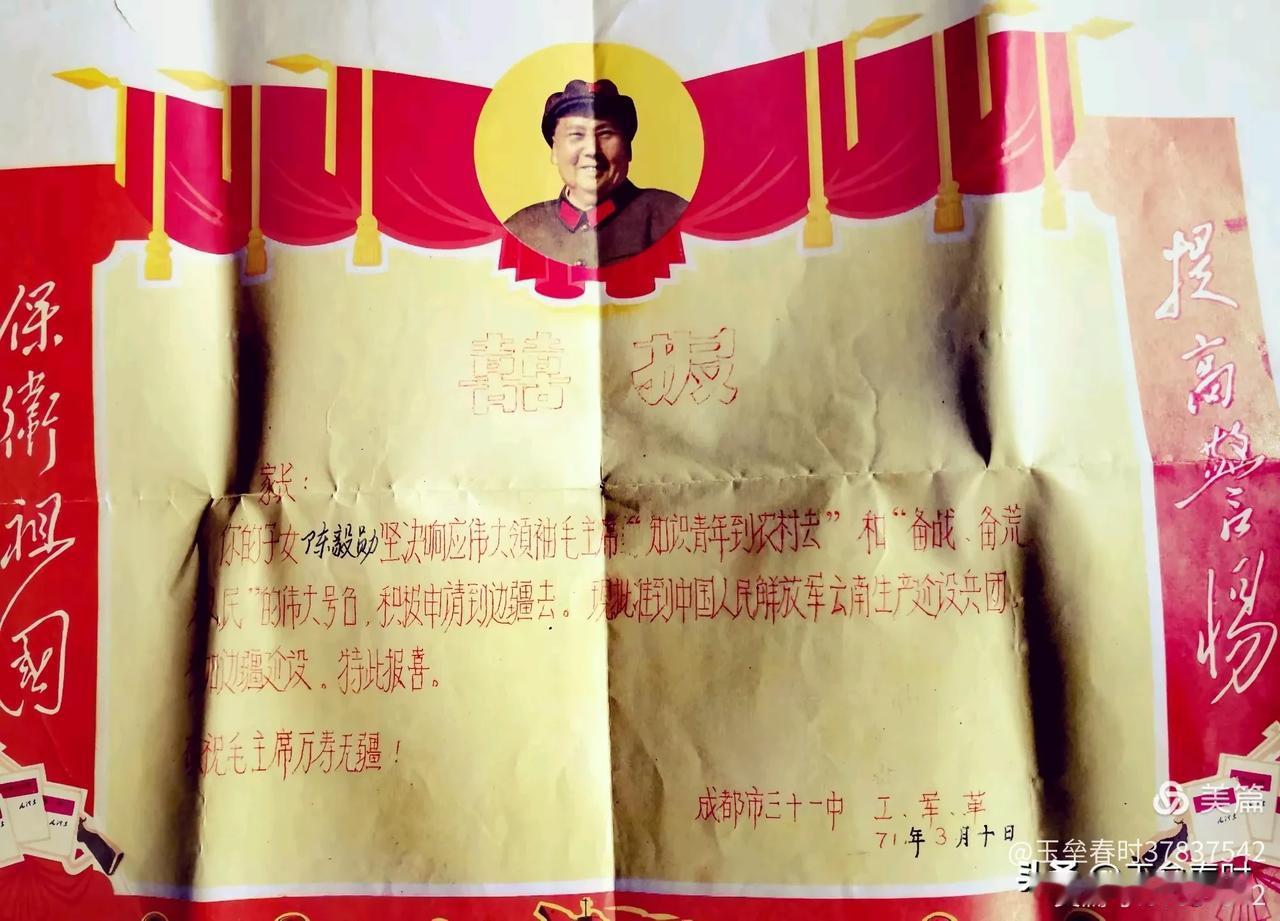 提高警惕
保衛祖國
囍报
家长：
你的子女陈毅勋坚决响应伟大領袖毛主席“知识青年到农村去”和“备战、备荒
人民”的伟大号召，积极申请到边疆去。现批准到中国人民解放军云南生产建设兵团
加边疆建设。特此报喜。
祝毛主席万寿无疆！
成都市三十一中 工、军、革
71年3月十日
美篇
@玉垒春时37837542
2